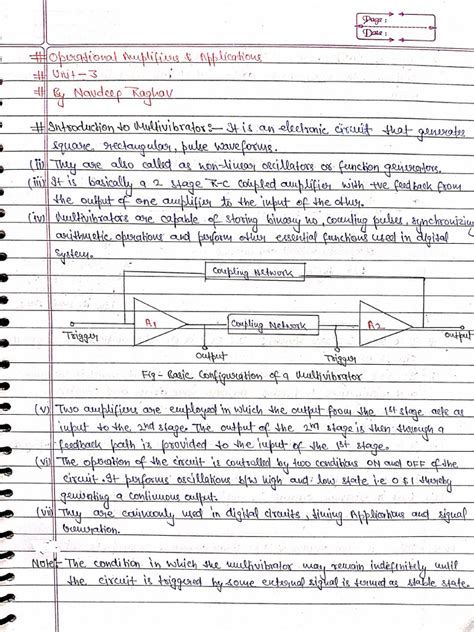 Page:
Date:
# Operational Amplifiers & Applications
# Unit-3
# By Navdeep Raghav
# Introduction to Multivibrators:- It is an electronic circuit that generates
square, rectangular, pulse waveforms.
(ii) They are also called as non-linear oscillators or function generators.
(iii) It is basically a 2 stage R-C coupled amplifier with +ve feedback from
the output of one amplifier to the input of the other.
(iv) Multivibrators are capable of storing binary no, counting pulses, synchronizing
arithmetic operations and perform other essential functions used in digital
system.
Coupling Network
A1
Coupling Network
A2
Trigger
output
Trigger
output
Fig - Basic Configuration of a Multivibrator
(v) Two amplifiers are employed in which the output from the 1st stage acts as
input to the 2nd stage. The output of the 2nd stage is then through a
feedback path is provided to the input of the 1st stage.
(vi) The operation of the circuit is controlled by two conditions ON and OFF of the
circuit. It performs oscillations b/w high and low state i.e 0 & 1 thereby
generating a continuous output.
(vii) They are commonly used in digital circuits, timing Applications and signal
Generation.
Note:- The condition in which the multivibrator may remain indefinitely until
the circuit is triggered by some external signal is termed as stable state.